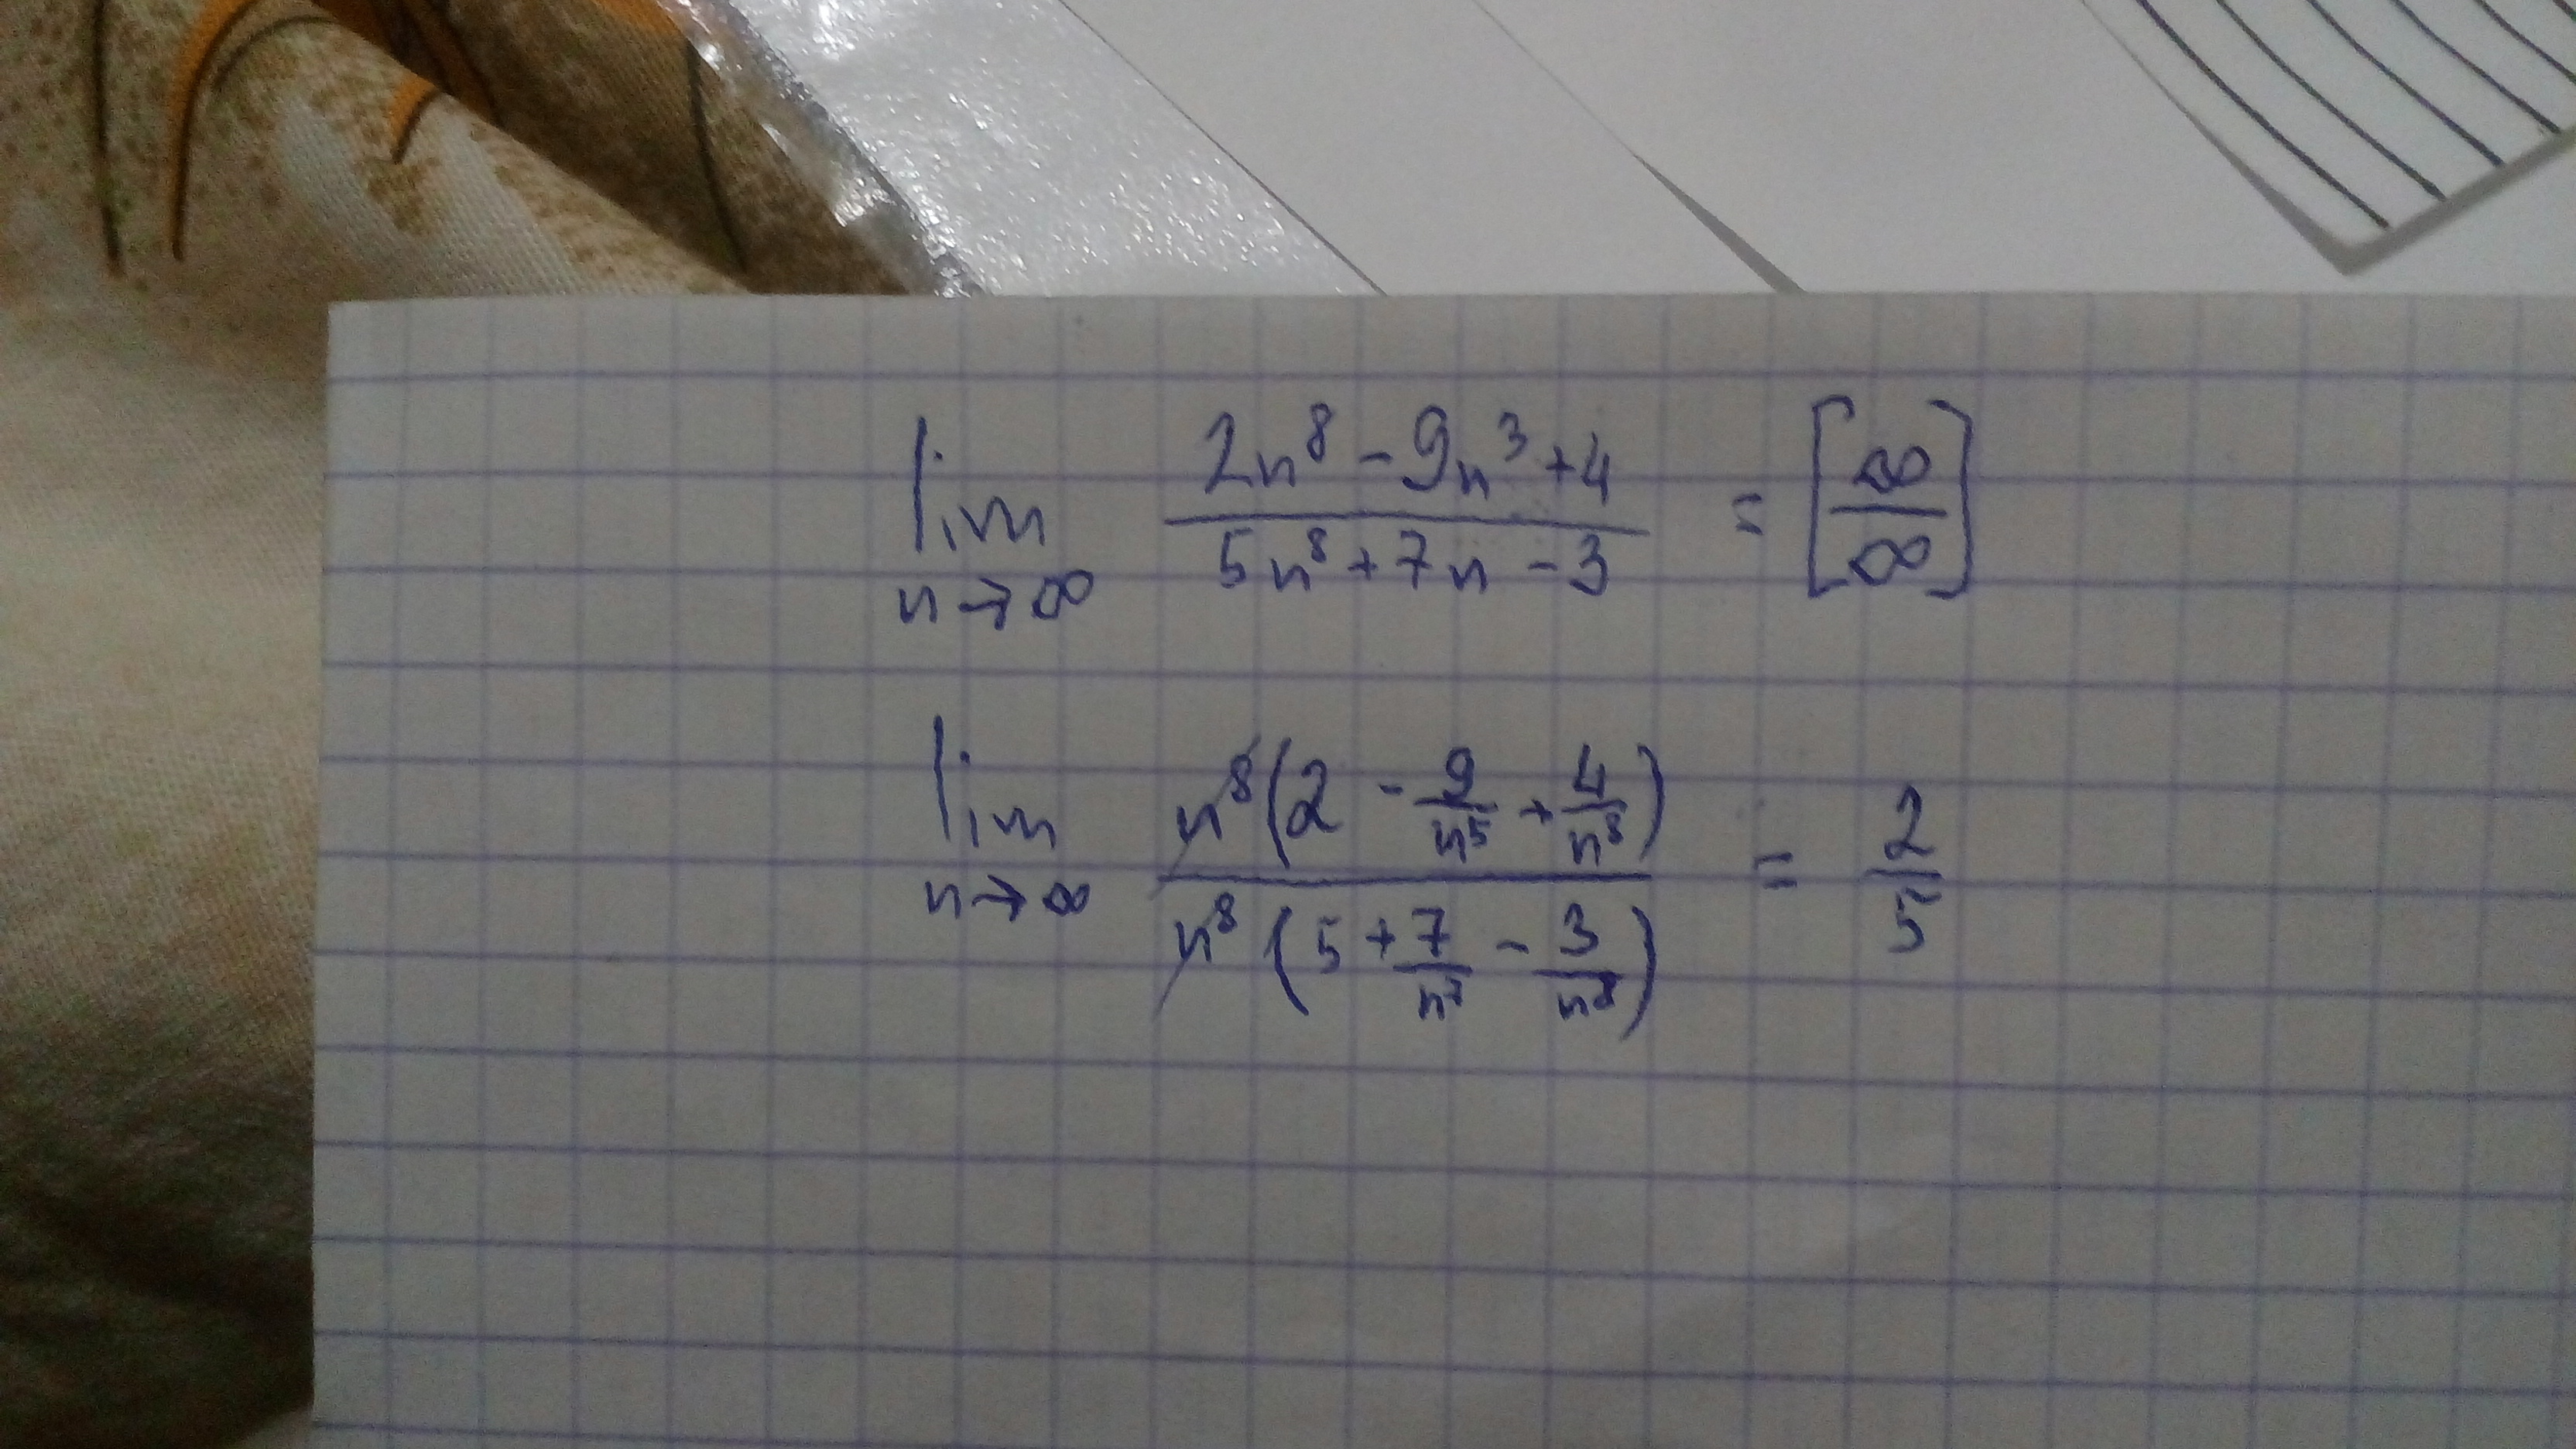 lim n→∞ (2n⁸ - 9n³ + 4)/(5n⁸ + 7n - 3) = [∞/∞]
lim n→∞ n⁸(2 - 9/n⁵ + 4/n⁸)/n⁸(5 + 7/n⁷ - 3/n⁸) = 2/5